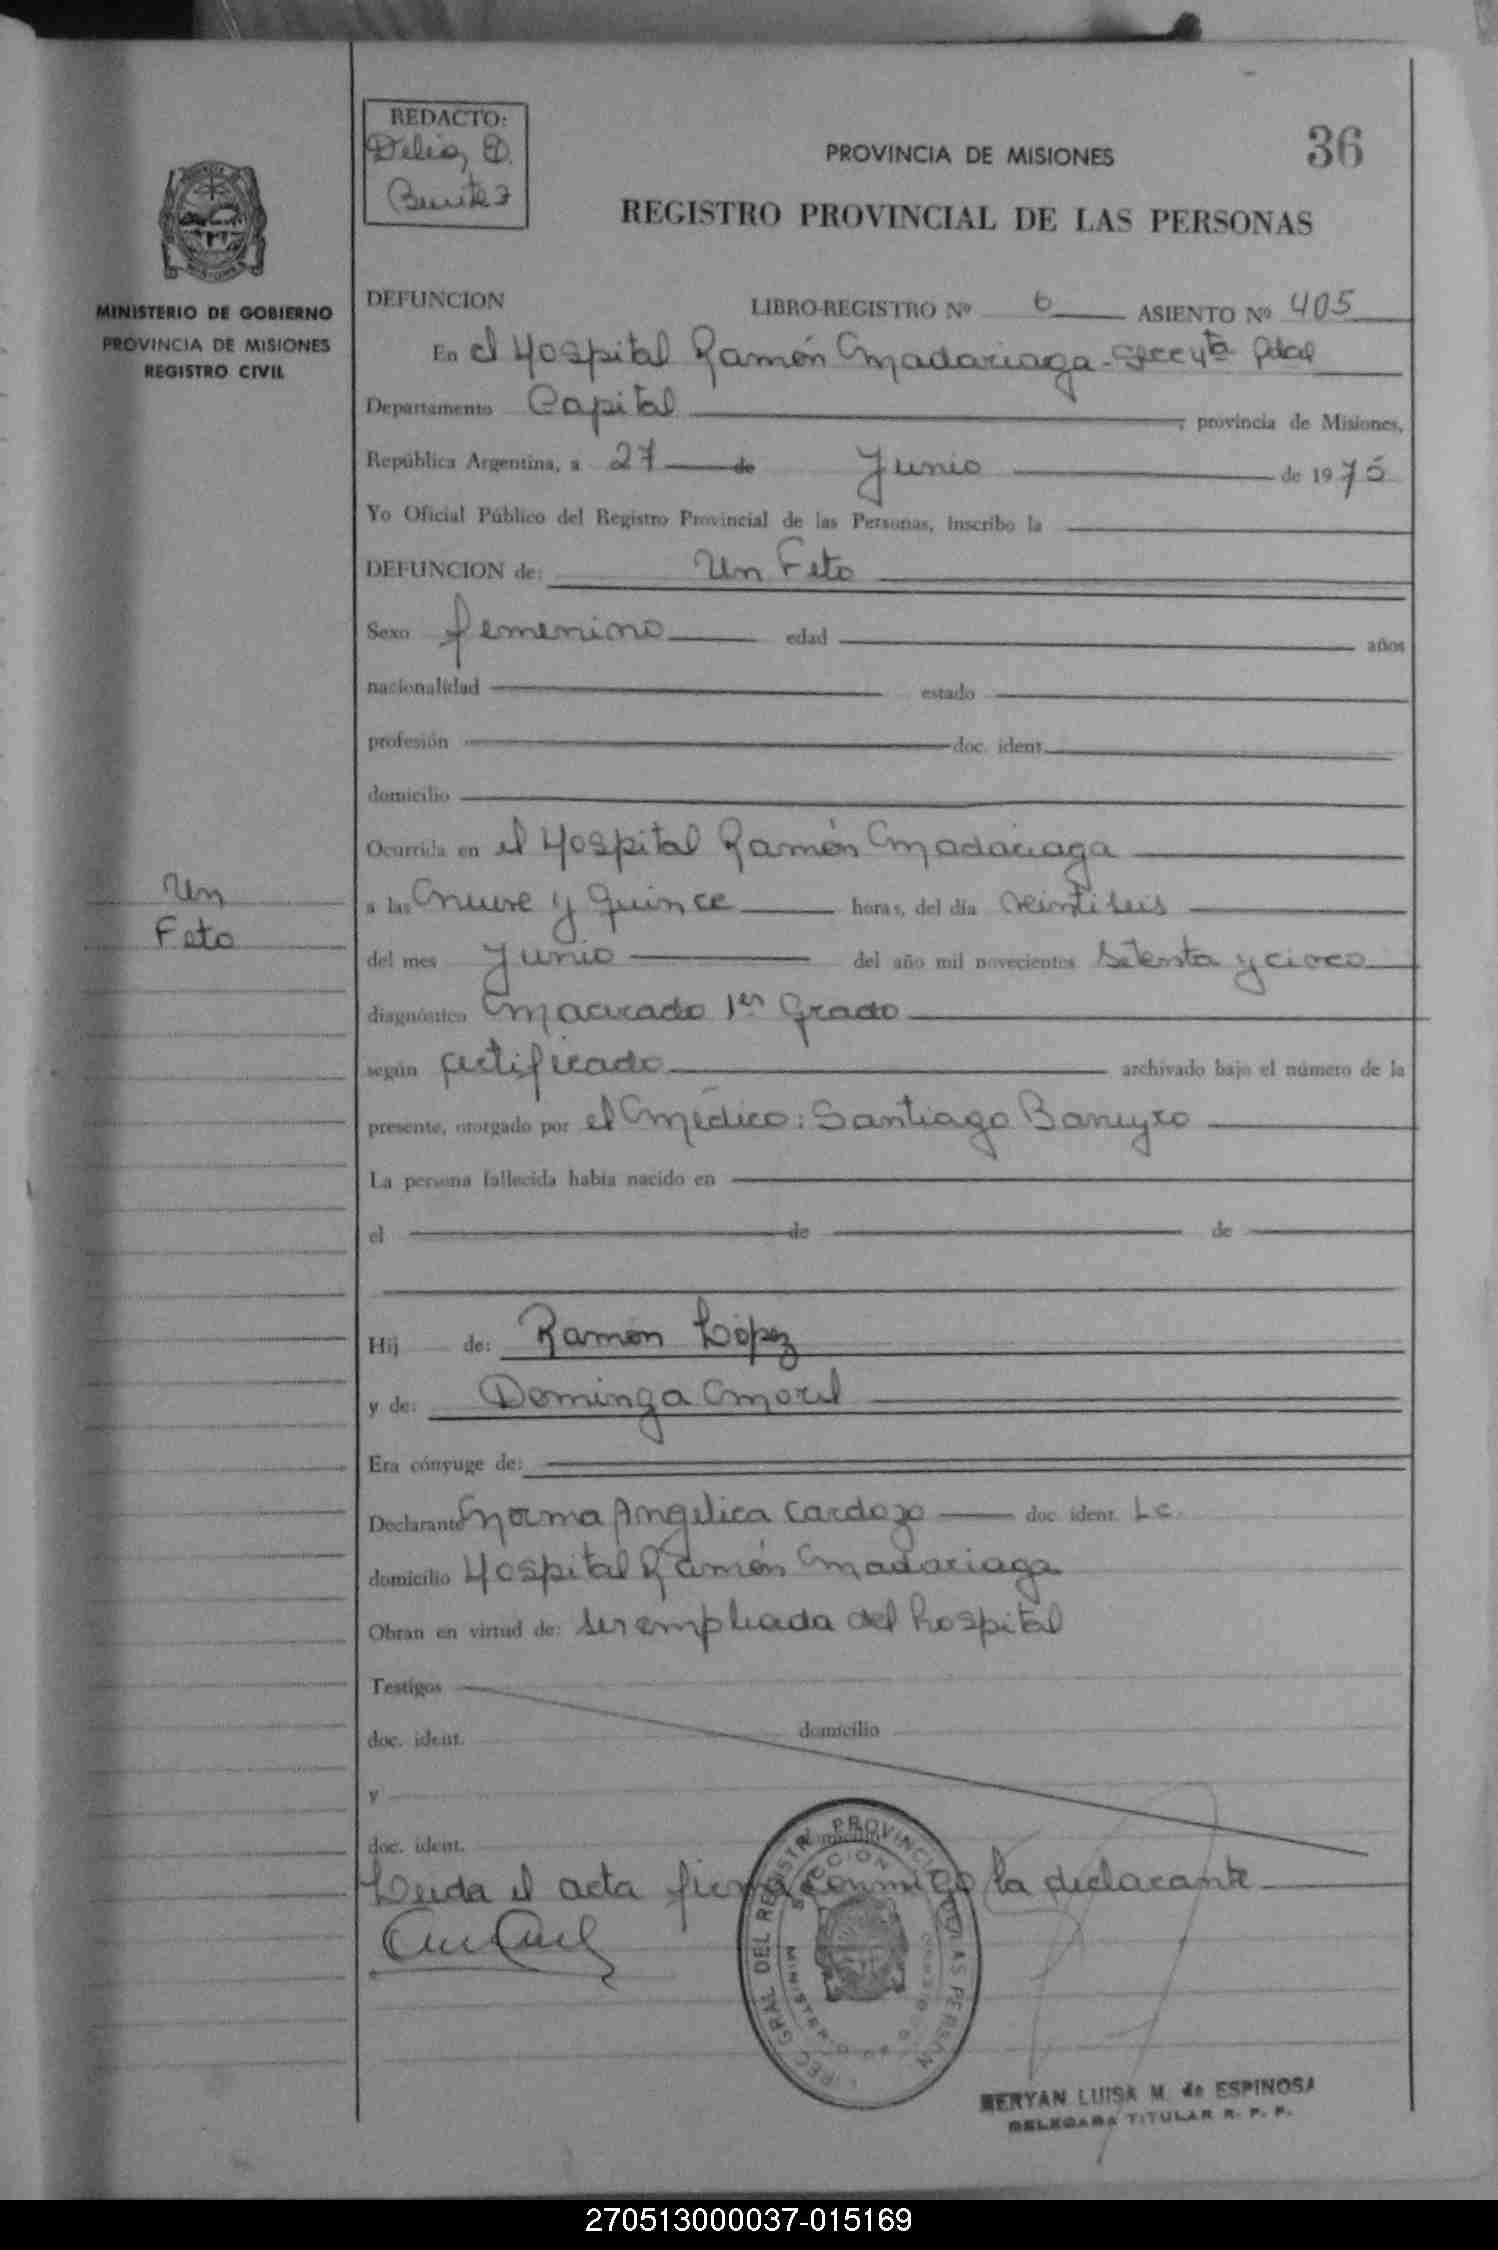 REDACTO:
Delia, D.
Benitez
PROVINCIA DE MISIONES
36
REGISTRO PROVINCIAL DE LAS PERSONAS
MINISTERIO DE GOBIERNO
PROVINCIA DE MISIONES
REGISTRO CIVIL
DEFUNCION LIBRO-REGISTRO Nº 6 ASIENTO Nº 405
En el Hospital Ramón Madariaga-
Departamento Capital , provincia de Misiones,
República Argentina, a 27 de Junio de 1975
Yo Oficial Público del Registro Provincial de las Personas, inscribo la
DEFUNCION de: Un Feto
Sexo femenino edad años
nacionalidad estado
profesión doc. ident.
domicilio
Ocurrida en el Hospital Ramón Madariaga
Un
Feto
a las nueve y quince horas, del día veintiseis
del mes Junio del año mil novecientos setenta y cinco
diagnóstico Macerado 1er Grado
según certificado archivado bajo el número de la
presente, otorgado por el Médico: Santiago Baneyro
La persona fallecida había nacido en
el de de
Hij de: Ramón López
y de: Dominga Morel
Era cónyuge de:
Declarante Norma Angelica Cardozo doc. ident. Lc.
domicilio Hospital Ramón Madariaga
Obran en virtud de: ser empleada del hospital
Testigos
doc. ident. domicilio
y
doc. ident.
Leida el acta firma conmigo la declarante
MERYAN LUISA M. de ESPINOSA
DELEGADA TITULAR R. P. P.
270513000037-015169